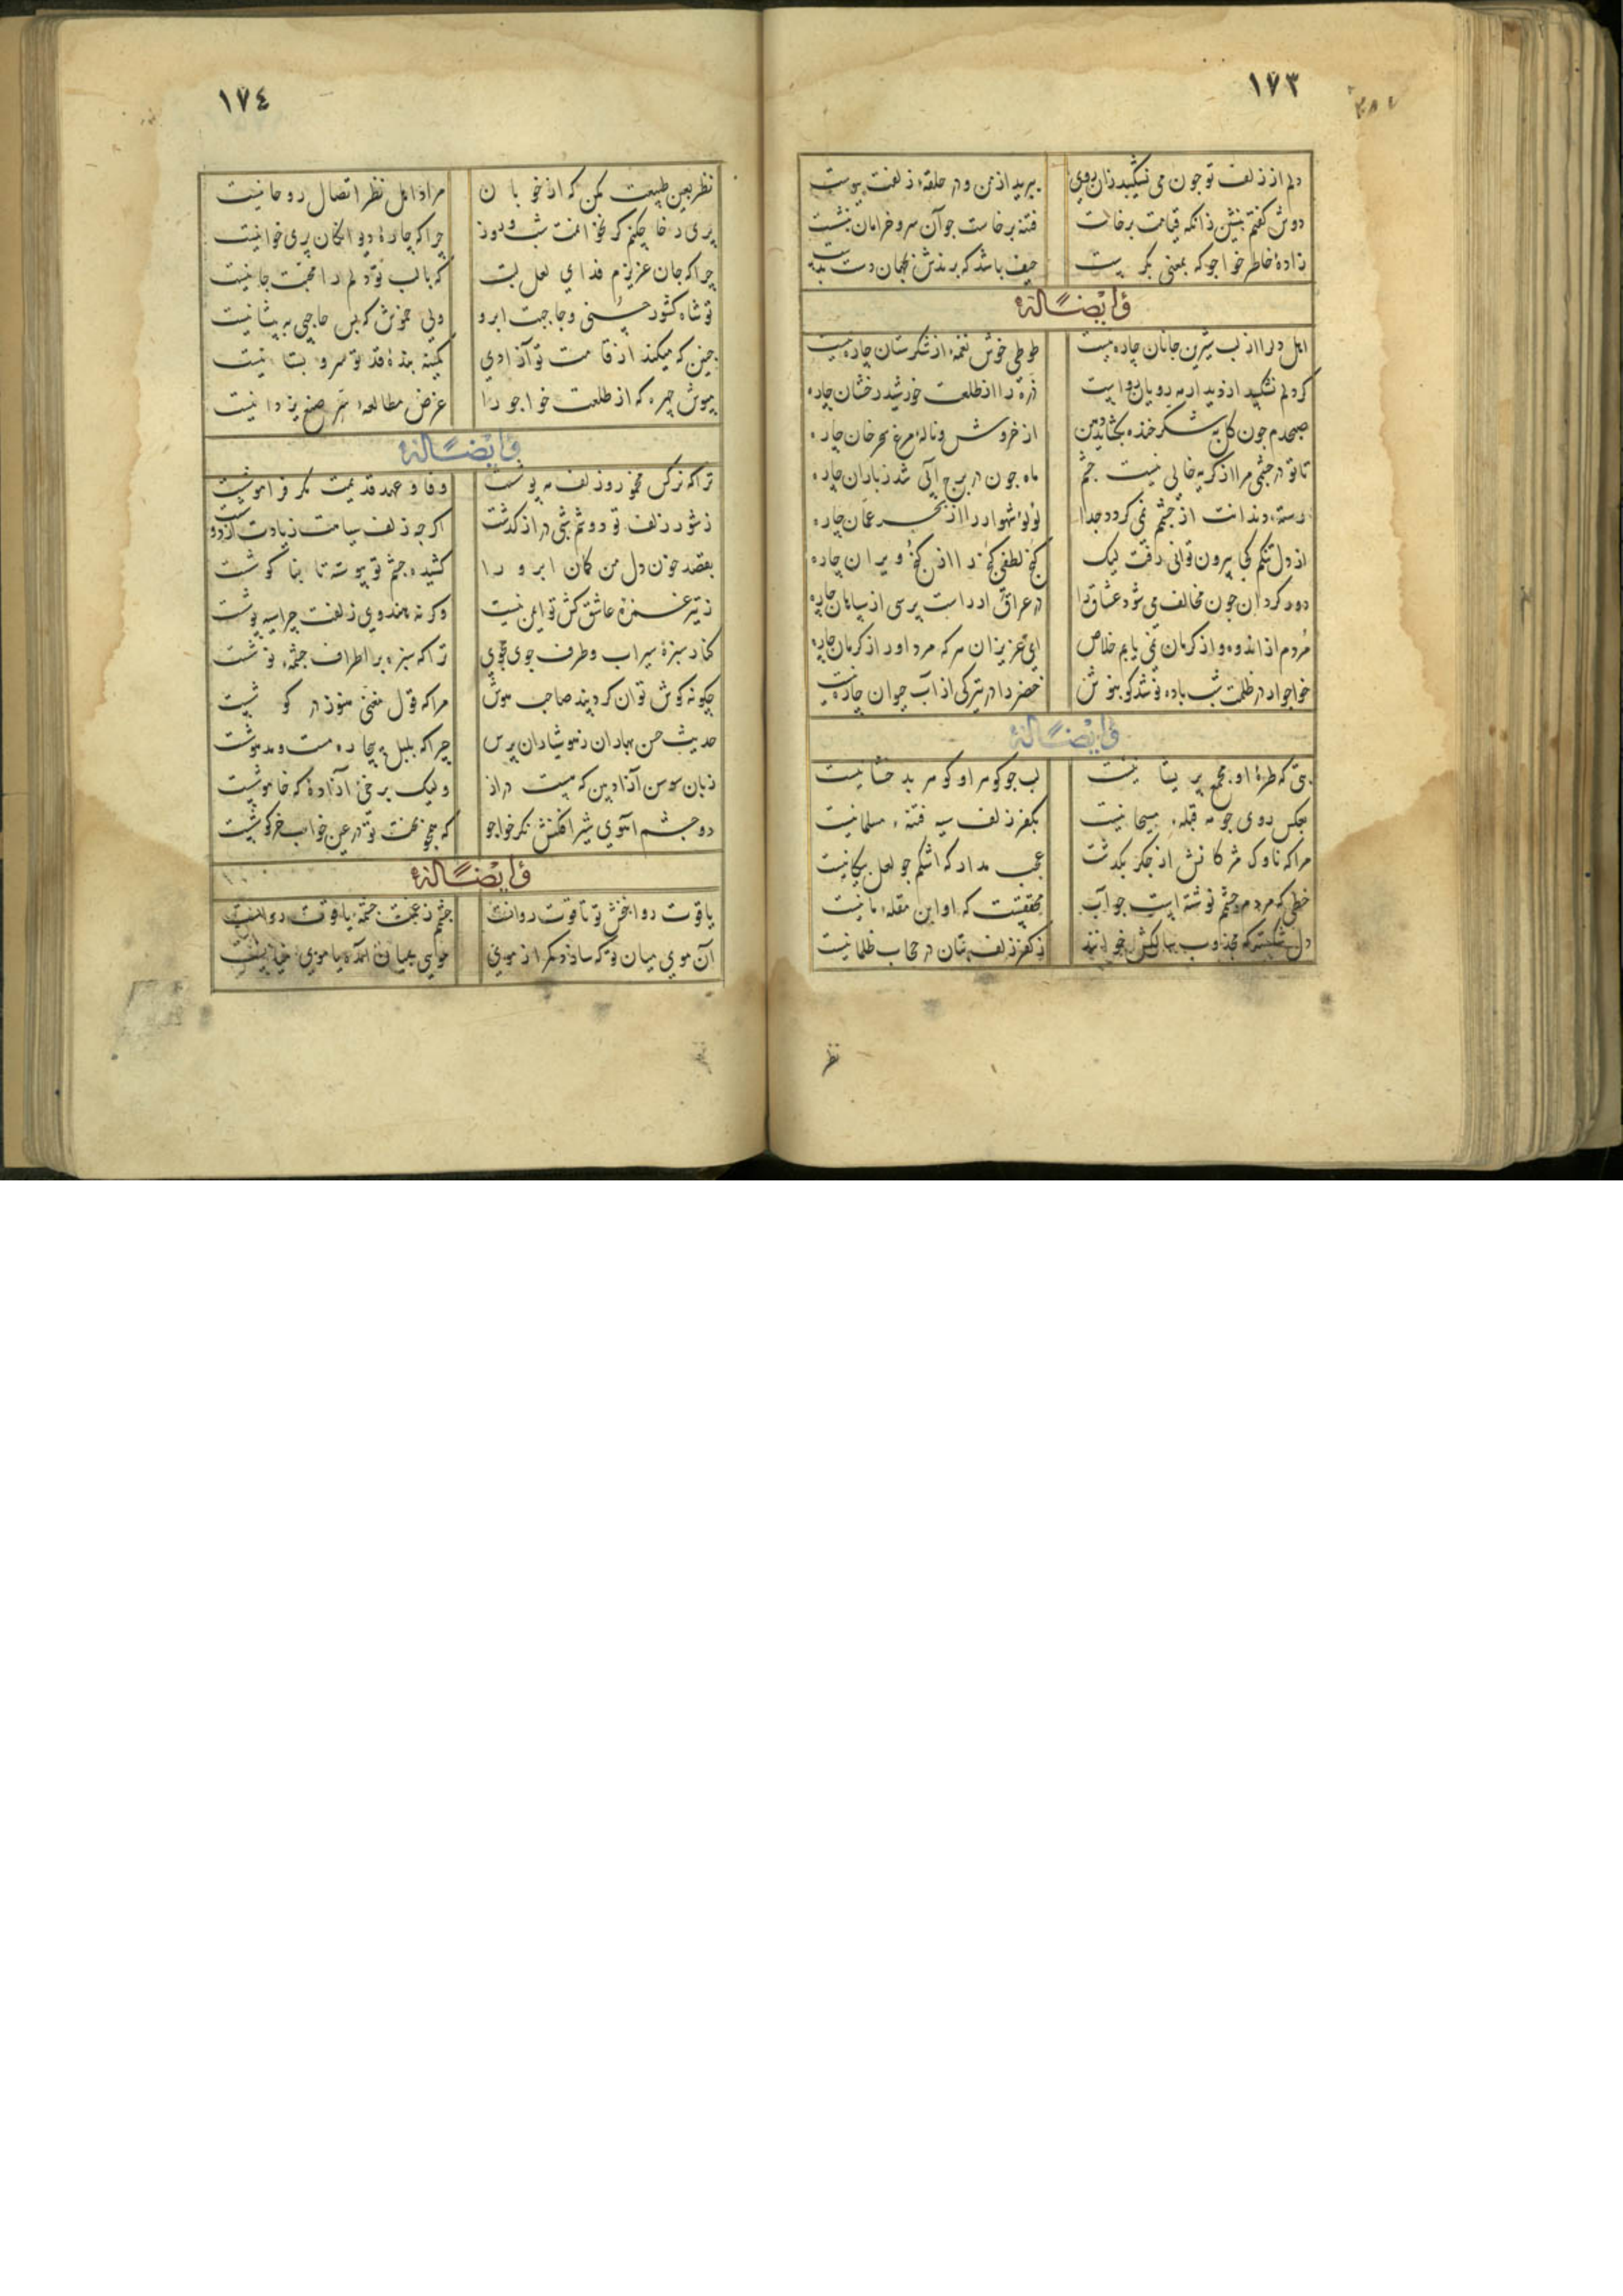 ١٧٣
دلم از زلف تو جون می نشکیبد زان روی ببرید از من و در حلقهٔ زلفت پیوست
دوش گفتم بنشین زانکه قیامت برخاست فتنه برخاست جو آن سرو خرامان بنشست
زادهٔ خاطر خواجو که بمعنی بکرست حیف باشد که برندش بجهان دست بدست
وله ایضًا
اهل دل را از لب شیرین جانان چاره نیست طوطی خوش نغمه از شکرستان چاره نیست
گر دلم نشکیبد از دیدار مه رویان رواست ذره را از طلعت خورشید رخشان چاره
صبحدم جون گل به شکر خنده بکشاید دهن از خروش و نالهٔ مرغ سحر خوان چاره
تا تو در چشمی مرا از گریه خالی نیست جشم ماه جون در برج آبی شد ز باران چاره
رستهٔ دندانت از چشم نمی گردد جدا لولوء شهوار را از بحر عمان چاره
از دل تنگم کجا بیرون توانی رفت لیک گنج لطفی گنج را از کنج ویران چاره
دور گردان جون مخالف می شود عشاق را در عراق ار راست پرسی از سپاهان چاره
مردم از اندوه و از کرمان نمی یابم خلاص ای عزیزان هر که مرد او را ز کرمان چاره
خواجو ار در ظلمت شب باده نوشد گو بنوش خضر را در تیرگی از آب حیوان چاره نیست
وله ایضًا
بتی که طرهٔ او مجمع پریشانیست لب جو گوهر او گوهر بدخشانیست
بعکس روی جو مه قبلهٔ مسیحانیست بکفر زلف سیه فتنهٔ مسلمانیست
مرا که ناوک مژگانش از جگر بگذشت عجب مدار که اشکم جو لعل پیکانیست
خطی که مردم چشمم نوشته است جو آب محققست که او ابن مقلهٔ ثانیست
دل شکسته که مجذوب سالکش خوانند ز کفر زلف بتان در حجاب ظلمانیست
نظر
١٧٤
نظر بعین طبیعت مکن که از خوبان مراد اهل نظر اتصال روحانیست
پری رخا چکنم گر نخوانمت شب و روز چرا که چارهٔ دیوانگان پری خوانیست
چرا که جان عزیزم فدای لعل لبت که با لب تو دلم را محبت جانیست
تو شاه کشور حسنی و حاجبت ابرو ولی خموش که بس حاجبی به پیشانیست
جنین که میکند از قامت تو آزادی کمینه بندهٔ قد تو سرو بستانیست
مپوش چهره که از طلعت خواجو را غرض مطالعهٔ سر صنع یزدانیست
وله ایضًا
ترا که نرگس مخمور و زلف مه پوشست وفا و عهد قدیمت مگر فراموشست
ز شور زلف تو دوشم شبی دراز گذشت اگرجه زلف سیاهت زیادت از دوشست
بقصد خون دل من کمان ابرو را کشیده جشم تو پیوسته تا بناگوشست
ز تیر غمزهٔ عاشق کش تو ایمن نیست وگرنه هندوی زلفت چرا سیه پوشست
کنار سبزهٔ سیراب و طرف جوی مجوی ترا که سبزه بر اطراف چشمهٔ نوشست
چگونه گوش توان کرد پند صاحب هوش مرا که قول مغنی هنوز در گوشست
حدیث حسن بهاران ز هوشیاران پرس چرا که بلبل بیچاره مست و مدهوشست
زبان سوسن آزاد بین که هست دراز ولیک برخی آزادهٔ که خاموشست
دو جشم آهوی شیر افکنش نگر خواجو که همچو بخت تو در عین خواب خرگوشست
وله ایضًا
یاقوت روانبخش تو تا قوت روانست جشمم ز غمت جشمهٔ یاقوت روانست
آن موی میان تو که سازد کمر از موی مویی بمیان آمده یا موی میانست